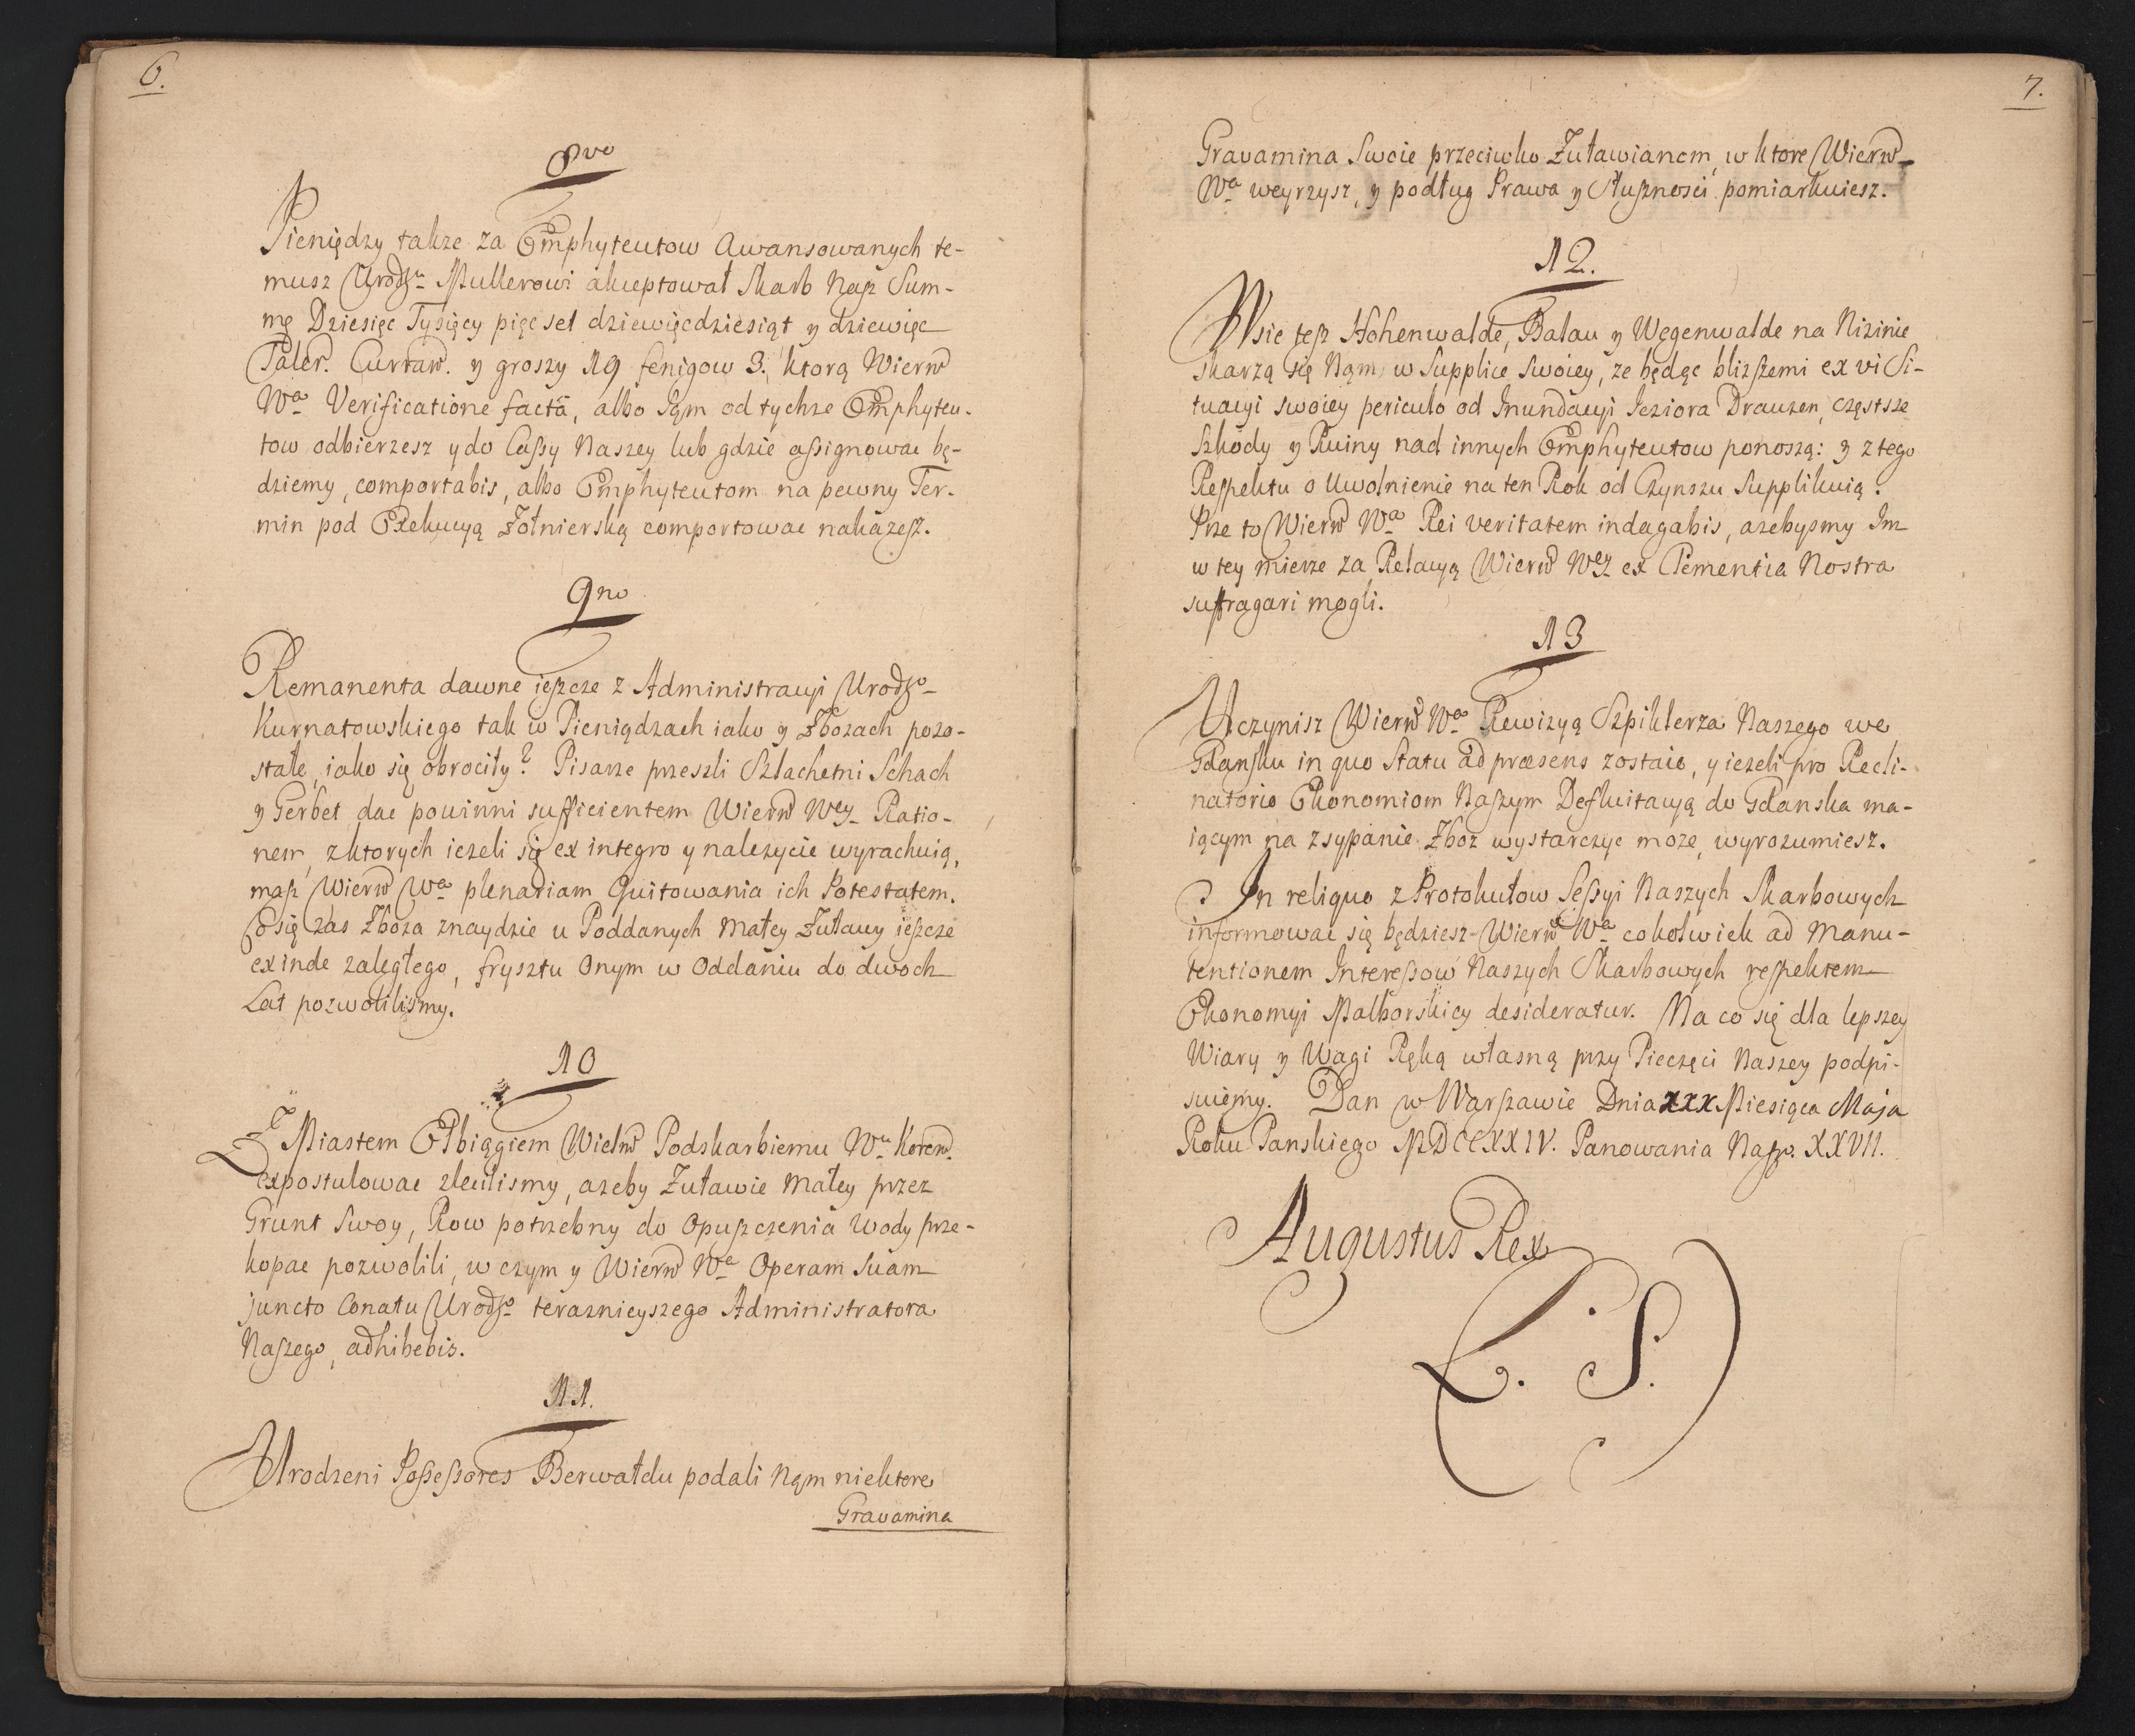 6.
8vo
Pieniędzy takze za Emphyteutow Awansowanych te-
musz Urodzu Mullerowi akceptował Skarb Nasz Sum-
mę Dziesięc Tysięcy pięc set dziewięcdziesiąt y dziewięc
Taler. Curran. y groszy 19 fenigow 3. ktorą Wierno
Wa Verificatione factâ, albo Sąm od tychze Emphyteu-
tow odbierzesz y do Cassy Naszey lub gdzie assignowac bę-
dziemy, comportabis, albo Emphyteutom na pewny Ter-
min pod Exekucyą Zołnierską comportowac nakazesz.
9no
Remanenta dawne ieszcze z Administracyi Urodzo
Kurnatowskiego tak w Pieniądzach iako y Zbozach pozo-
stałe, iako się obrociły? Pisarze przeszli Szlachetni Schach
y Gerbet dac powinni sufficientem Wierno Wey Ratio-
nem, z ktorych iezeli się ex integro y nalezycie wyrachuią,
masz Wierno Wa plenariam Quitowania ich Potestatem.
Co się zas Zboza znaydzie u Poddanych Małey Zuławy ieszcze
exinde zaległego, frysztu Onym w Oddaniu do dwoch
Lat pozwolilismy.
10
Z Miastem Elbiągiem Wielno Podskarbiemu Wu Koron.
expostulowac zlecilismy, azeby Zuławie Małey przez
Grunt Swoy, Row potrzebny do Opuszczenia Wody prze-
kopac pozwolili, w czym y Wierno Wa Operam Suam
juncto Conatu Urodzo teraznieyszego Administratora
Naszego, adhibebis.
11.
Urodzeni Possessores Berwałdu podali Nąm niektore
Gravamina
7.
Gravamina Swoie przeciwko Zuławianom, w ktore Wierno
Wa weyrzysz, y podług Prawa y Słusznosci pomiarkuiesz.
12.
Wsie tesz Hohenwalde, Balau y Węgenwalde na Nizinie
skarzą się Nąm, w Supplice Swoiey, ze będąc blizszemi ex vi Si-
tuacyi swoiey periculo od Inundacyi Ieziora Drauzen, częstsze
Szkody y Ruiny nad innych Emphyteutow ponoszą: y z tego
Respektu o Uwolnienie na ten Rok od Czynszu Supplikuią.
Prze to Wierno Wa Rei veritatem indagabis, azebysmy Im
w tey mierze za Relacyą Wierno Wey ex Clementia Nostra
suffragari mogli.
13
Uczynisz Wierno Wa Rewizyą Szpiklerza Naszego we
Gdansku in quo Statu ad præsens zostaie, y iezeli pro Recli-
natorio Ekonomiom Naszym Defluitacyą do Gdanska ma-
iącym na zsypanie Zboz wystarczyc moze, wyrozumiesz.
In reliquo z Protokułow Sessyi Naszych Skarbowych
informowac się będziesz Wierno Wa cokolwiek ad Manu-
tentionem Interessow Naszych Skarbowych respektem
Ekonomyi Malborskiey desideratur. Na co się dla lepszey
Wiary y Wagi Ręką własną przy Pieczęci Naszey podpi-
suiemy. Dan w Warszawie Dnia XXX Miesiąca Maja
Roku Panskiego MDCCXXIV. Panowania Nasz. XXVII.
Augustus Rex
L. S.